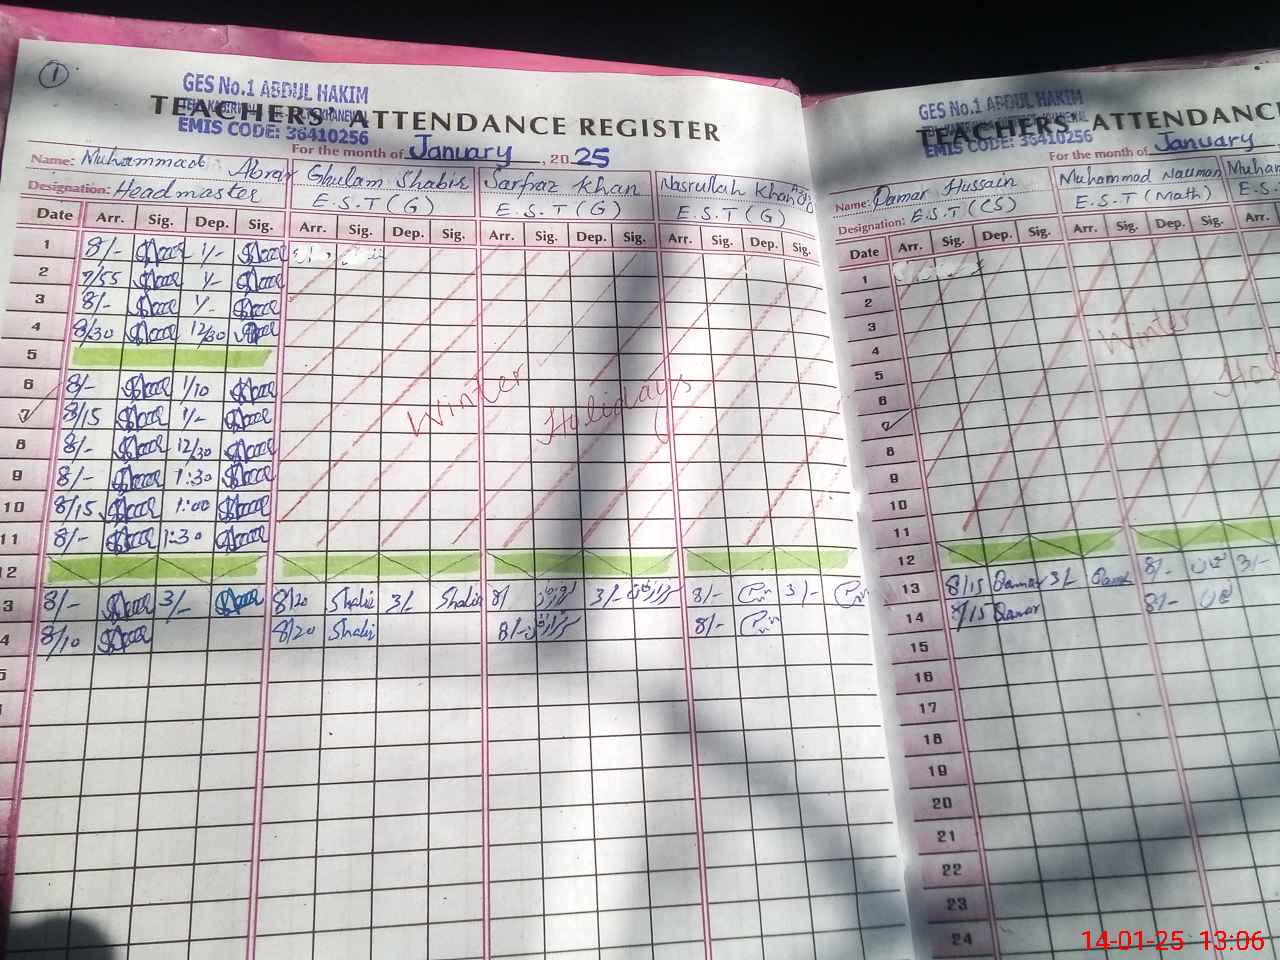 1
GES No.1 ABDUL HAKIM
TEACHERS' ATTENDANCE REGISTER
EMIS CODE: 36410256
For the month of January, 2025
Name: Muhammad Abrar Ghulam Shabir Sarfraz Khan Nasrullah Khan
Designation: Headmaster E.S.T (G) E.S.T (G) E.S.T (G)
Date Arr. Sig. Dep. Sig. Arr. Sig. Dep. Sig. Arr. Sig. Dep. Sig. Arr. Sig. Dep. Sig.
1 8/- 1/-
2 7/55 1/-
3 8/- 1/-
4 8/30 12/30
5
6 8/- 1/10
7 8/15 1/-
8 8/- 12/30
9 8/- 1:30
10 8/15 1:00
11 8/- 1:30
Winter Holidays
12
3 8/- 3/- 8/20 Shabir 3/- Shabir 8/ 3/- 8/- 3/-
4 8/10 8/20 Shabir 8/- 8/-
5
GES No.1 ABDUL HAKIM
TEACHERS' ATTENDANCE
EMIS CODE: 36410256
For the month of January
Name: Qamar Hussain Muhammad Nauman Muham
Designation: E.S.T (CS) E.S.T (Math) E.S
Date Arr. Sig. Dep. Sig. Arr. Sig. Dep. Sig. Arr.
1
2
3
4
5
6
7
8
9
10
11
Winter Hol
12
13 8/15 Qamar 3/- Qamar 8/- 3/-
14 8/15 Qamar 8/-
15
16
17
18
19
20
21
22
23
24
14-01-25 13:06